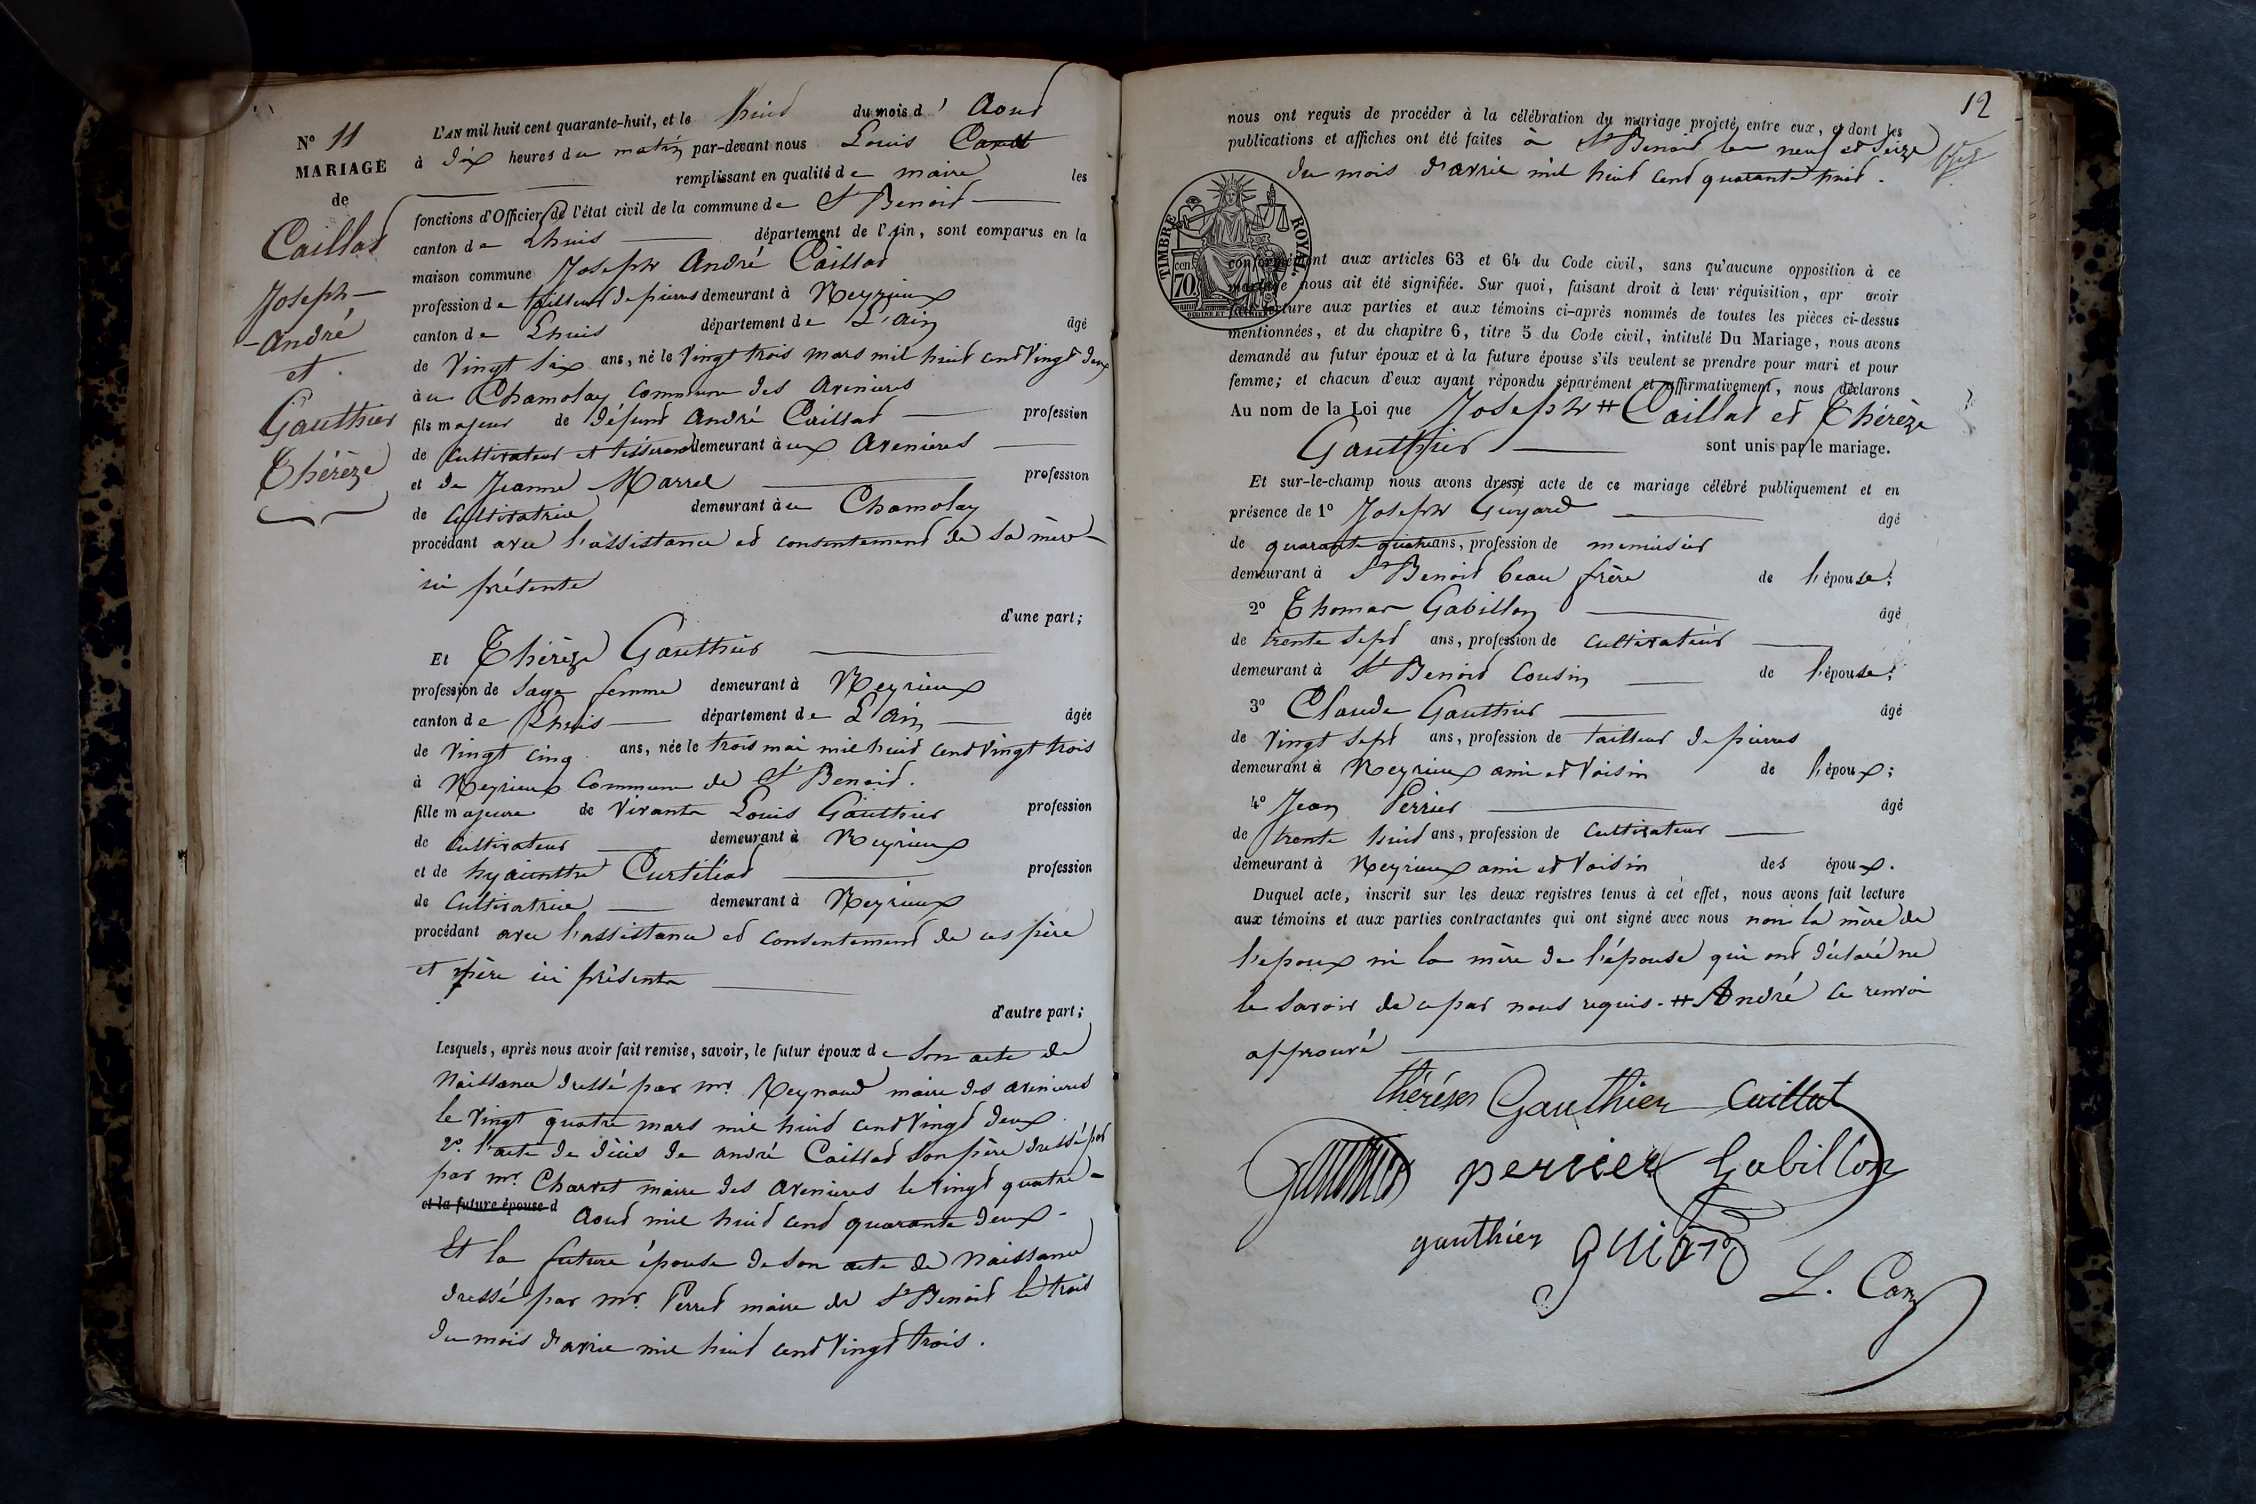 N° 11
MARIAGE
de
Caillat
Joseph-
-André
et
Gauthier
Thérèze
L'AN mil huit cent quarante-huit, et le huit du mois d' Aout
à dix heures du matin par-devant nous Louis
remplissant en qualité de maire les
fonctions d'Officier de l'état civil de la commune de St Benoit
canton de Lhuis département de l'Ain, sont comparus en la
maison commune Joseph André Caillat
profession de tailleur de pierres demeurant à Neyrieux
canton de Lhuis département de L'ain âgé
de vingt six ans, né le vingt trois mars mil huit cent vingt deux
à Chamolay commune des avenieres
fils majeur de défunt André Caillat profession
de cultivateur et tisserand demeurant aux avenieres
et de Jeanne Marrel profession
de cultivatrice demeurant à Chamolay
procédant avec l'assistance et consentement de sa mère
ici présente
d'une part;
Et Thérèze Gauthier
profession de sage femme demeurant à Neyrieux
canton de Lhuis département de L'ain âgée
de vingt cinq ans, née le trois mai mil huit cent vingt trois
à Neyrieux commune de St Benoit.
fille majeure de vivants Louis Gauthier profession
de cultivateur demeurant à Neyrieux
et de hyacinthe Curtiliat profession
de cultivatrice demeurant à Neyrieux
procédant avec l'assistance et consentement de ces père
et mère ici présents
d'autre part;
Lesquels, après nous avoir fait remise, savoir, le futur époux de son acte de
Naissance dressé par mr. Reynaud maire des avenieres
le vingt quatre mars mil huit cent vingt deux
2°. l'acte de décès de andré Caillat son père dressé par
par mr. Charvet maire des avenieres le vingt quatre
et la future épouse d aout mil huit cent quarante deux.
Et la future épouse de son acte de Naissance
dressé par mr. Perret maire de St Benoit le trois
du mois d'avril mil huit cent vingt trois.
12
nous ont requis de procéder à la célébration du mariage projeté entre eux, et dont les
publications et affiches ont été faites à St Benoit les neuf et seize
du mois d'avril mil huit cent quarante huit.
TIMBRE ROYAL
cen. 70
conformément aux articles 63 et 64 du Code civil, sans qu'aucune opposition à ce
mariage nous ait été signifiée. Sur quoi, faisant droit à leur réquisition, apr avoir
fait lecture aux parties et aux témoins ci-après nommés de toutes les pièces ci-dessus
mentionnées, et du chapitre 6, titre 5 du Code civil, intitulé Du Mariage, nous avons
demandé au futur époux et à la future épouse s'ils veulent se prendre pour mari et pour
femme; et chacun d'eux ayant répondu séparément et affirmativement, nous déclarons
Au nom de la Loi que Joseph # Caillat et Thérèze
Gauthier sont unis par le mariage.
Et sur-le-champ nous avons dressé acte de ce mariage célébré publiquement et en
présence de 1° Joseph Guyard âgé
de quarante quatre ans, profession de menuisier
demeurant à St Benoit beau frère de l'épouse;
2° Thomas Gabillon âgé
de trente sept ans, profession de cultivateur
demeurant à St Benoit cousin de l'épouse;
3° Claude Gauthier âgé
de vingt sept ans, profession de tailleur de pierres
demeurant à Neyrieux ami et voisin de l'époux;
4° Jean Perrier âgé
de trente huit ans, profession de cultivateur
demeurant à Neyrieux ami et voisin des époux.
Duquel acte, inscrit sur les deux registres tenus à cet effet, nous avons fait lecture
aux témoins et aux parties contractantes qui ont signé avec nous non la mère de
l'epoux ni la mère de l'épouse qui ont déclaré ne
le savoir de ce par nous requis. # André ce renvoi
approuvé
thérése Gauthier Caillat
Gauthier perrier Gabillon
gauthier guiard
L. Carr